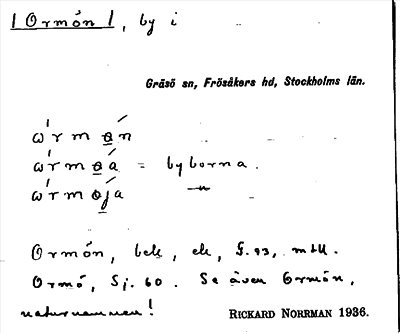 |Ormön|, by i
Gräsö sn, Frösåkers hd, Stockholms län.
ω´rmøn
ω´rmøá = byborna.
ω´rmøja –"–
Ormön, bek, ek, f. 93, mtl.
Ormö, Sj. 60. Se även Ormön,
naturnamnen!
RICKARD NORRMAN 1936.